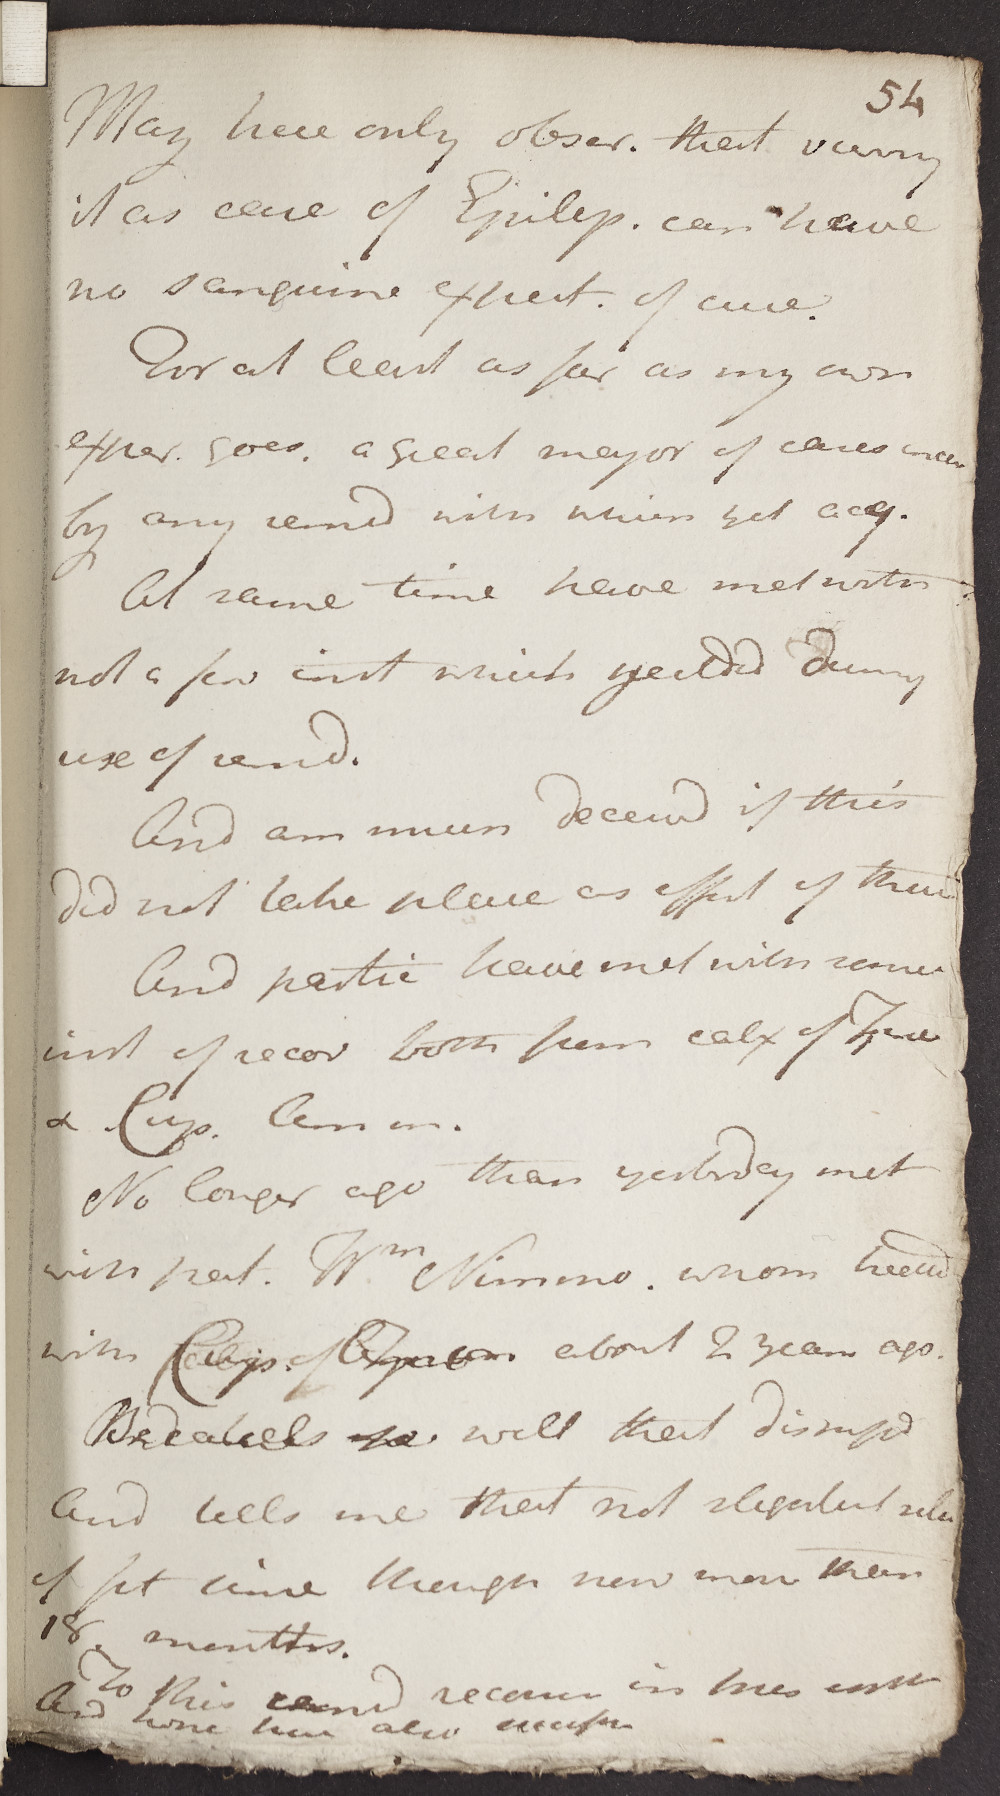 54
May here only obser. that viewing
it as case of Epilep. can have
no sanguine expect. of cure.
For at least as far as my own
exper. goes. a great major of cases incur
by any remed with which yet acq.
At same time have met with
not a few inst which yielded during
use of remed.
And am much deceived if this
did not take place as effect of them
And partic have met with some
inst of recov both from calx of Zinc
& Cup. Ammon.
No longer ago than yesterday met
with pat. Wm Nimmo. whom treated
with Cup. Ammon. about 2 years ago.
well that dismissd
And tells me that not slightest return
of fit since though now more than
18. months.
To this remed recover in this inst
And hope here also succesfu